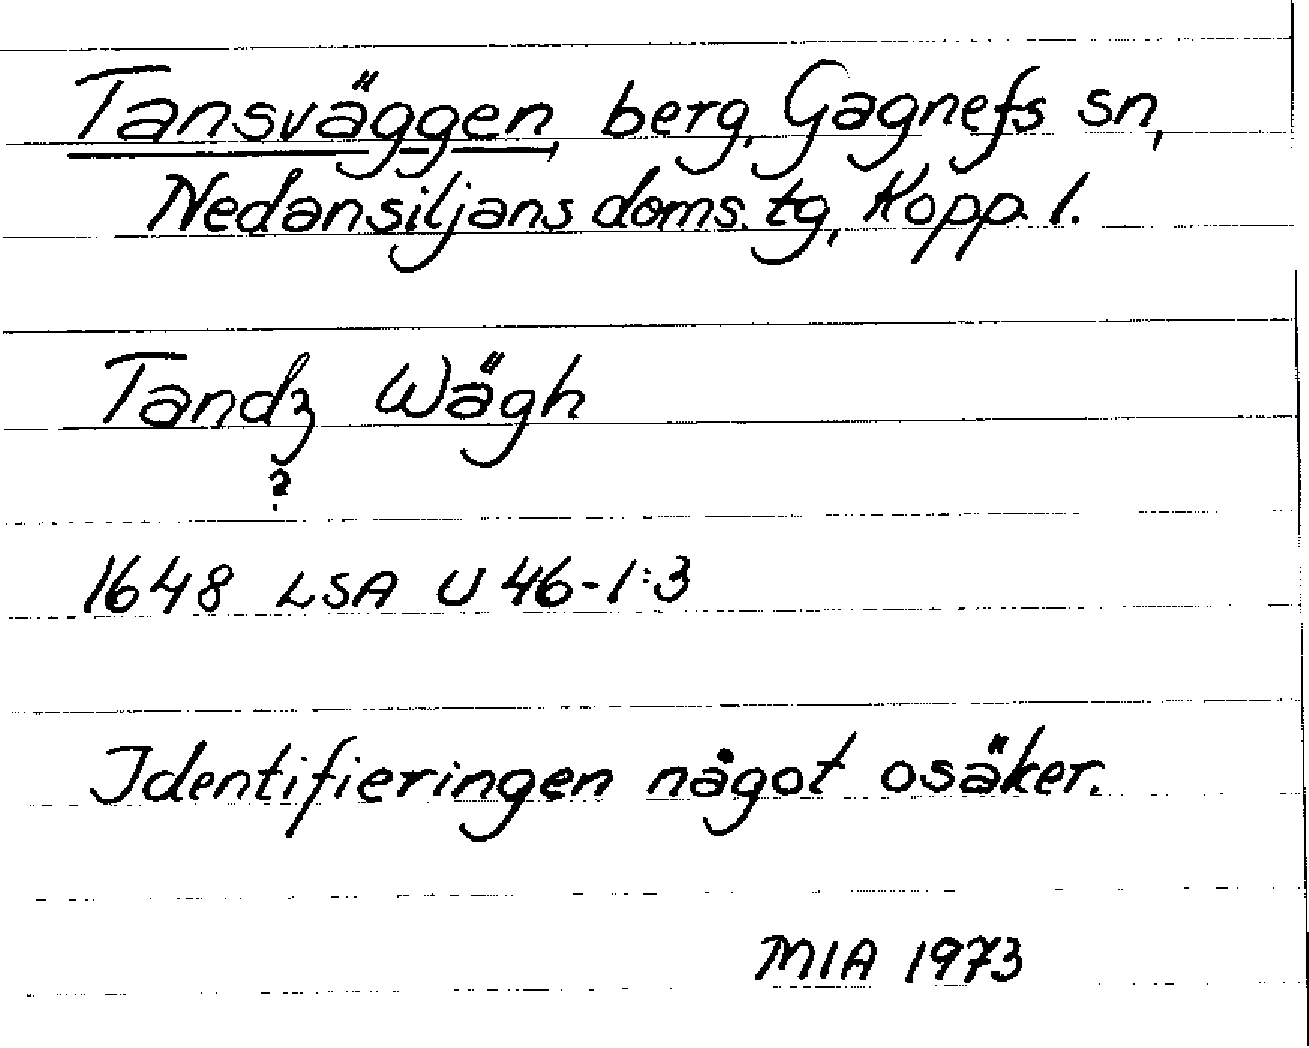 Tansväggen, berg, Gagnefs sn,
Nedansiljans doms. tg, Kopp. l.
Tandz Wägh
?
1648 LSA U 46-1:3
Identifieringen något osäker.
MIA 1973